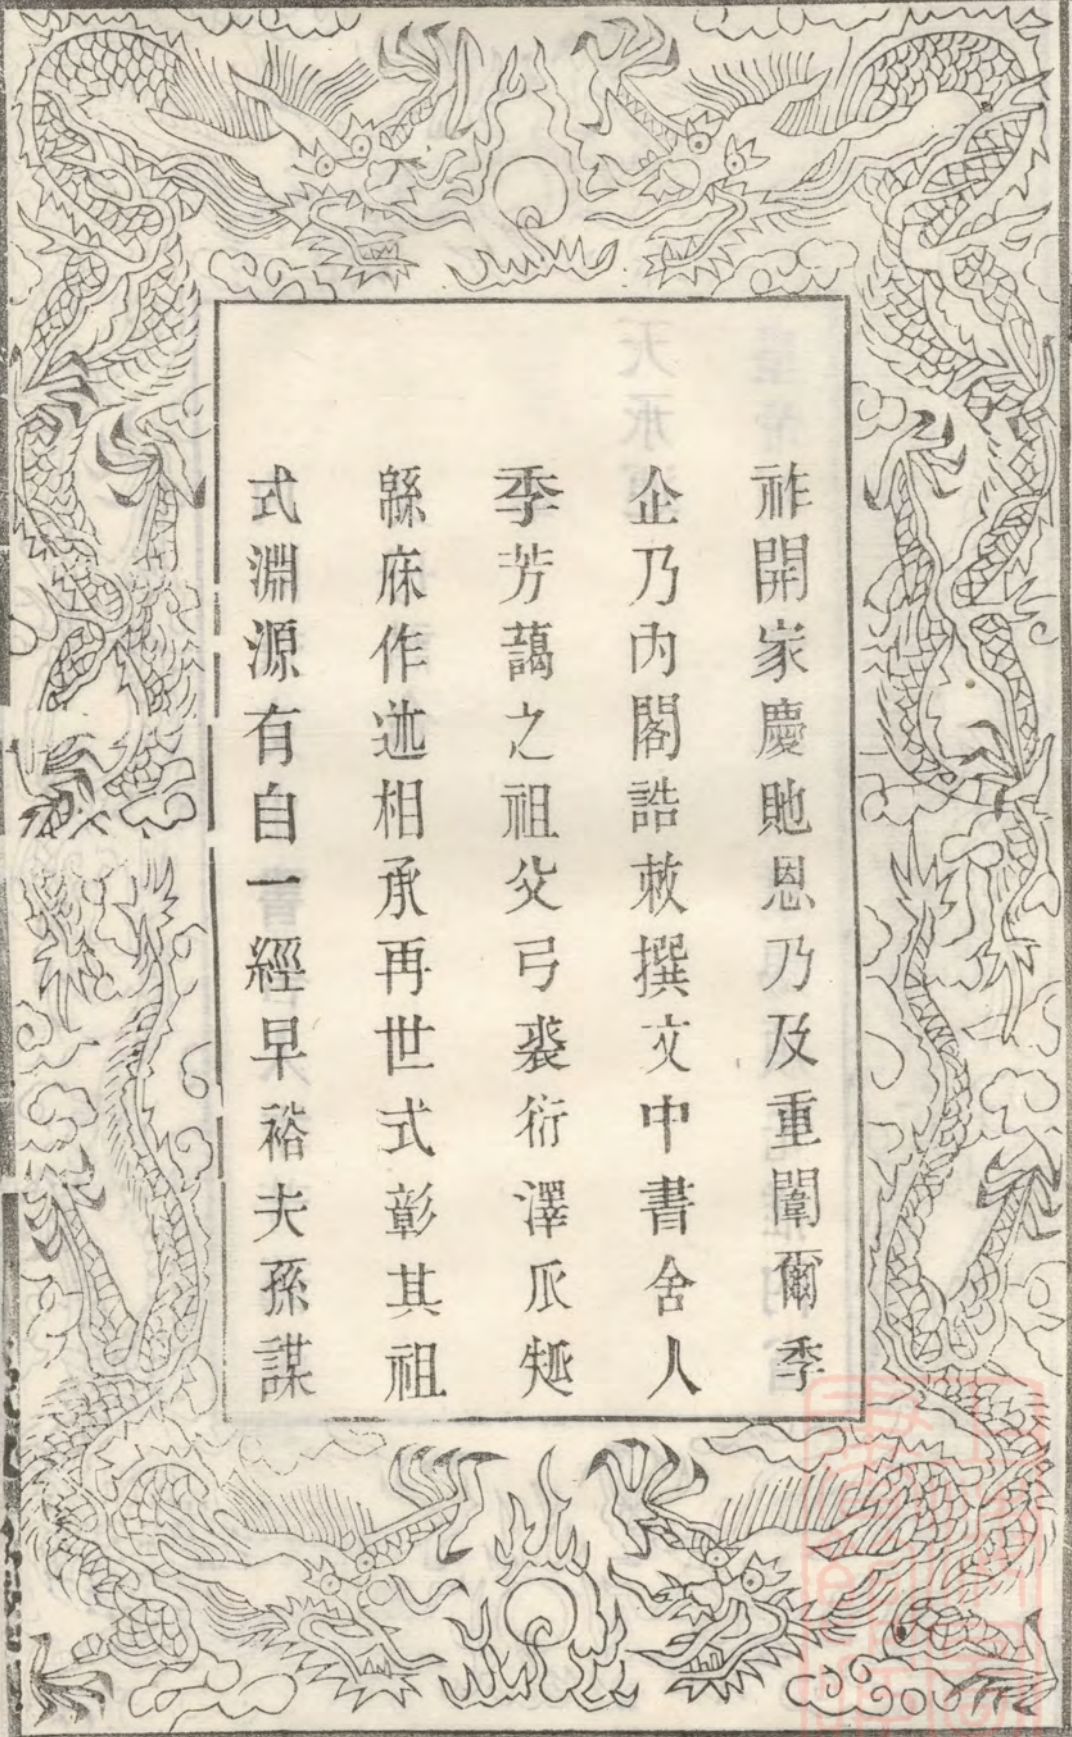 祚開家慶貤恩乃及重闈爾季
企乃內閣誥敕撰文中書舍人
季芳藹之祖父弓裘衍澤瓜瓞
緜庥作述相承再世式彰其祖
式淵源有自一經早裕夫孫謀